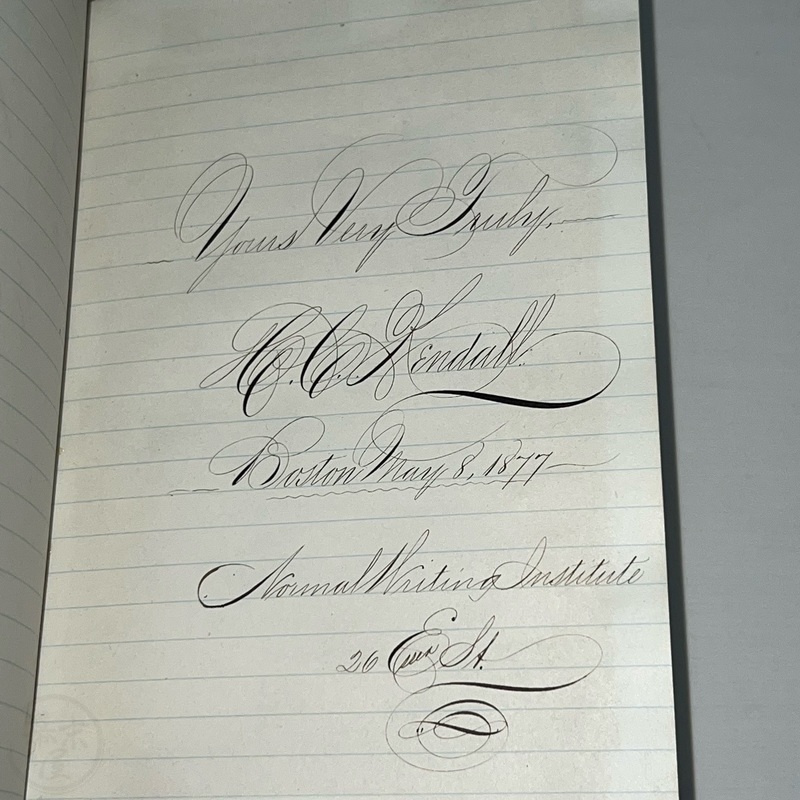 Yours Very Truly,
H. C. Kendall.
Boston May 8, 1877
Normal Writing Institute
26 Essex St.